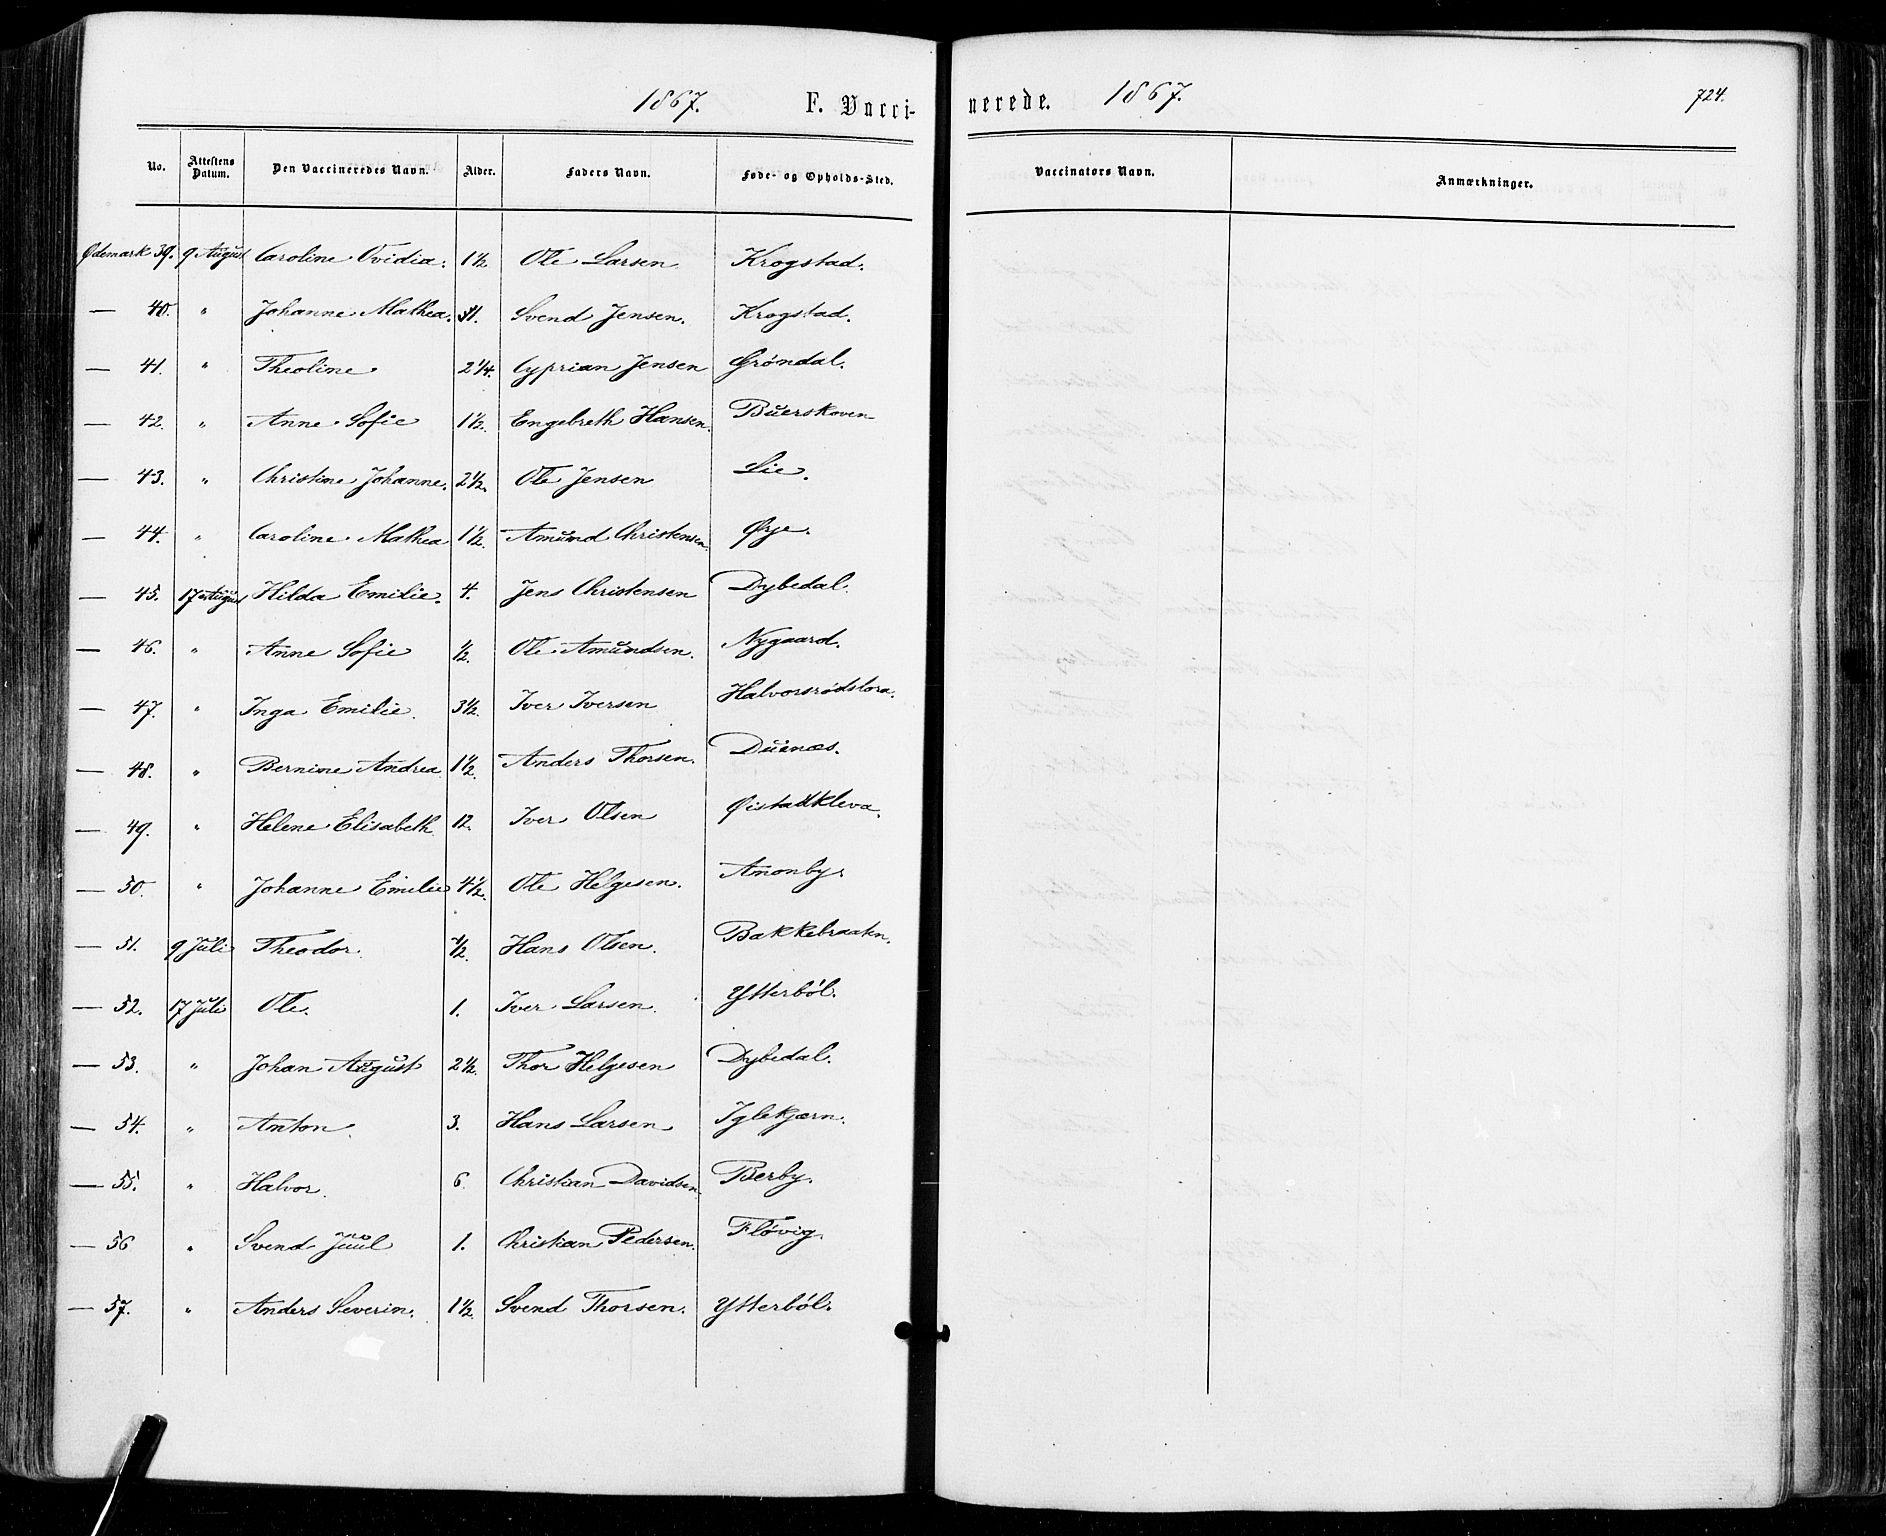 1867. F. Vaccinerede. 1867. 724.
No. Attestens Datum. Den Vaccineredes Navn. Alder. Faders Navn. Føde- og Opholds-Sted. Vaccinators Navn. Anmærkninger.
Ødemark 39. 9 August Caroline Ovidia. 1½ Ole Larsen Krogstad.
— 40. " Johanne Mathea. Svend Jensen. Krogstad.
— 41. " Theoline. 2¼. Cyprian Jensen Grøndal.
— 42. " Anne Sofie 1½. Engebreth Hansen. Buerskoven
— 43. " Christine Johanne. 2½. Ole Jensen Lie.
— 44. " Caroline Mathea 1½. Amund Christensen Ørje.
— 45. 17 August Hilda Emilie. 4. Jens Christensen Dybedal.
— 46. " Anne Sofie ½. Ole Amundsen. Nygaard.
— 47. " Inga Emilie. 3½. Iver Iversen Halvorsrødstora.
— 48. " Bernine Andrea 1½. Anders Thorsen. Duenæs.
— 49. " Helene Elisabeth 12. Iver Olsen Øistadkleva.
— 50. " Johanne Emilie 4½. Ole Helgesen. Amonby.
— 51. 9 Juli Theodor. ½. Hans Olsen. Bakkebraaten.
— 52. 17 Juli Ole. 1. Iver Larsen. Ytterböl.
— 53. " Johan August 2½. Thor Helgesen Dybedal.
— 54. " Anton. 3. Hans Larsen Iglekjærn.
— 55. " Halvor. 6. Christian Davidsen Berby.
— 56 " Svend Juul 1. Christian Pedersen. Fløvig.
— 57. " Anders Severin. 1½. Svend Thorsen. Ytterböl.